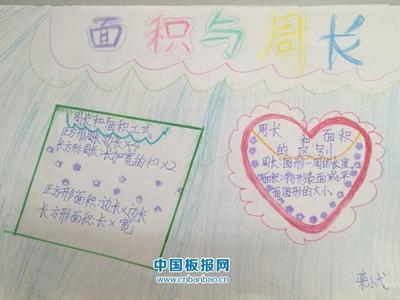 面积与周长
周长和面积公式
正方形周长:边长×4
长方形周长:长加宽的和×2
正方形面积:边长×边长
长方形面积:长×宽
周长和面积
的区别
周长:图形一周的长度,
面积:物形表面或平
面图形的大小。
中国板报网
www.cnbanbao.cn